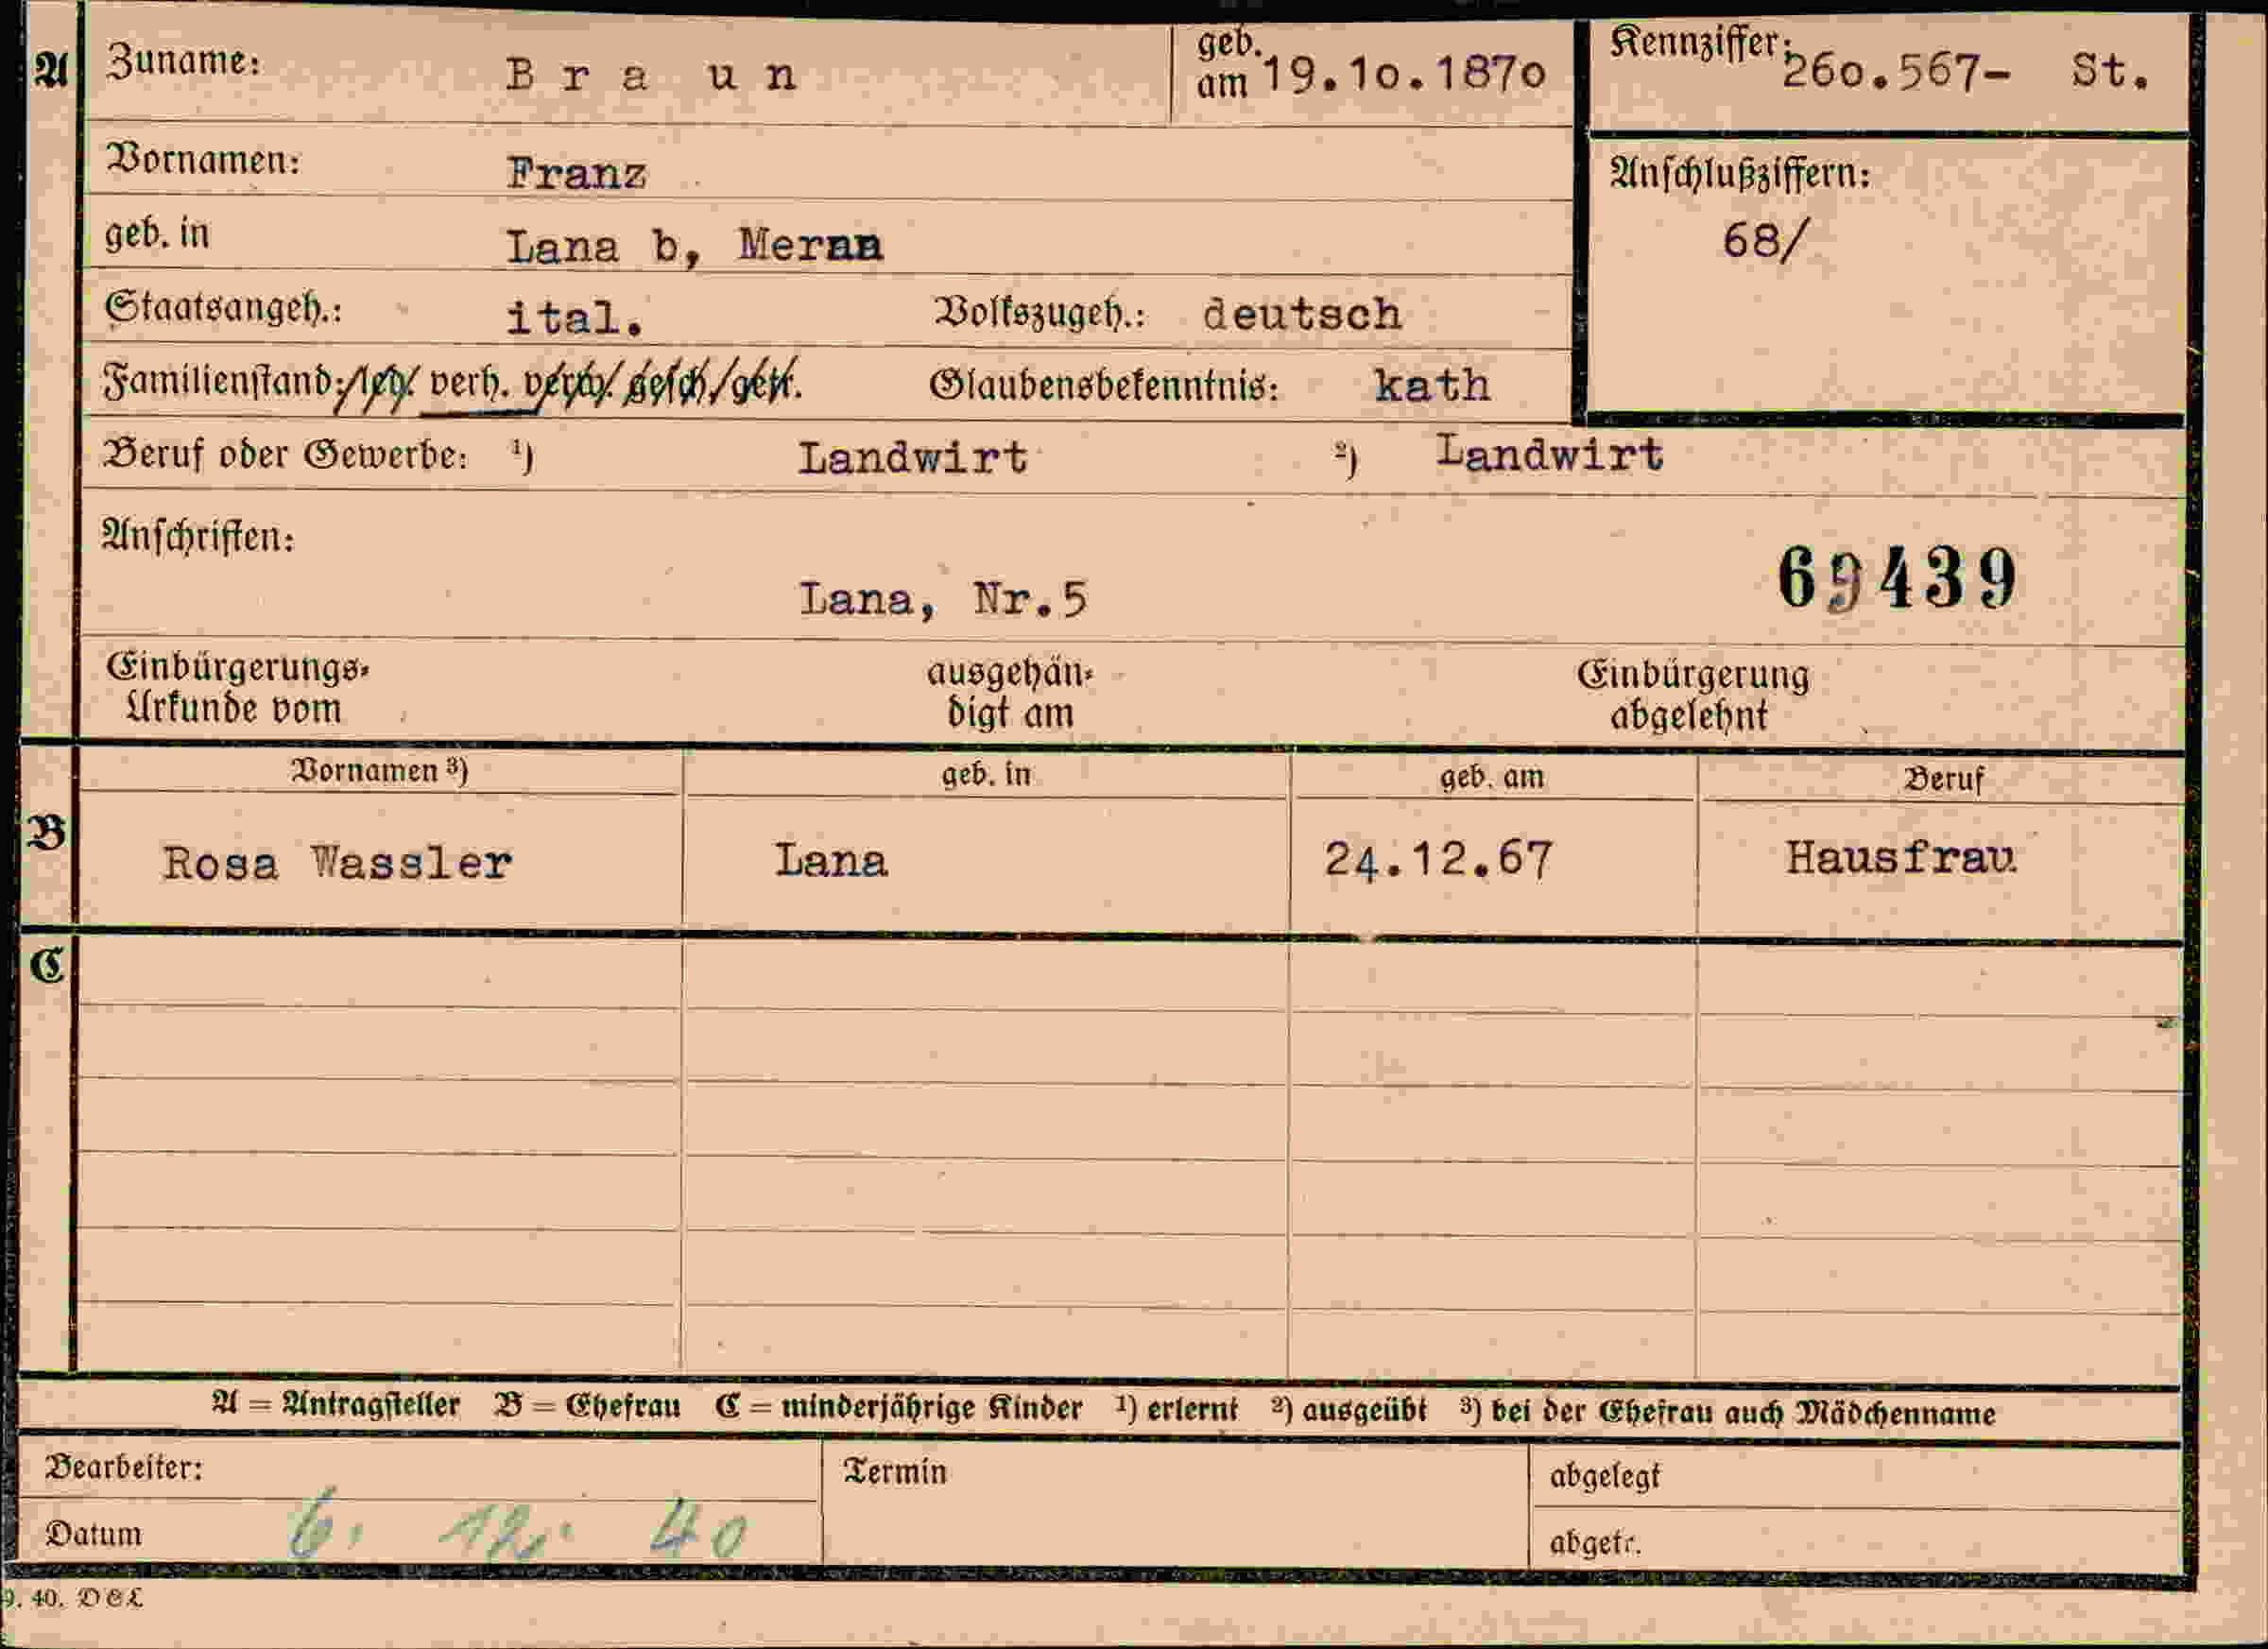 A Zuname: B r a u n geb. am 19.10.1870 Kennziffer: 260.567- St.
Vornamen: Franz
Anschlußziffern:
geb. in Lana b, Meran
68/
Staatsangeh.: ital. Volkszugeh.: deutsch
Familienstand: led. verh. verw. gesch. getr. Glaubensbekenntnis: kath
Beruf oder Gewerbe: ¹) Landwirt ²) Landwirt
Anschriften:
Lana, Nr.5 69439
Einbürgerungs-
Urkunde vom
ausgehän-
digt am
Einbürgerung
abgelehnt
Vornamen ³) geb. in geb. am Beruf
B Rosa Wassler Lana 24.12.67 Hausfrau
C
A = Antragsteller B = Ehefrau C = minderjährige Kinder ¹) erlernt ²) ausgeübt ³) bei der Ehefrau auch Mädchenname
Bearbeiter: Termin abgelegt
Datum 6. 12. 40 abgetr.
9. 40. DEL